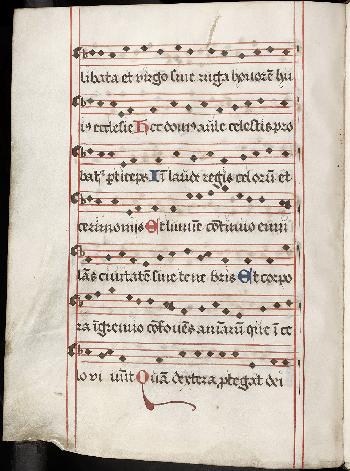 libata et virgo sine ruga honorē hu
iꝰ ecclesie Hec domꝰ aule celestis pro
batꝰ pticeps In laude regis celorū et
cerimoniis Et lumīe cōtinuo emu
lās civitatē sine tenebris Et corpo
ra ī gremio cōfovēs aīarū que ī ce
lo vivūt Quā dextera ꝓtegat dei